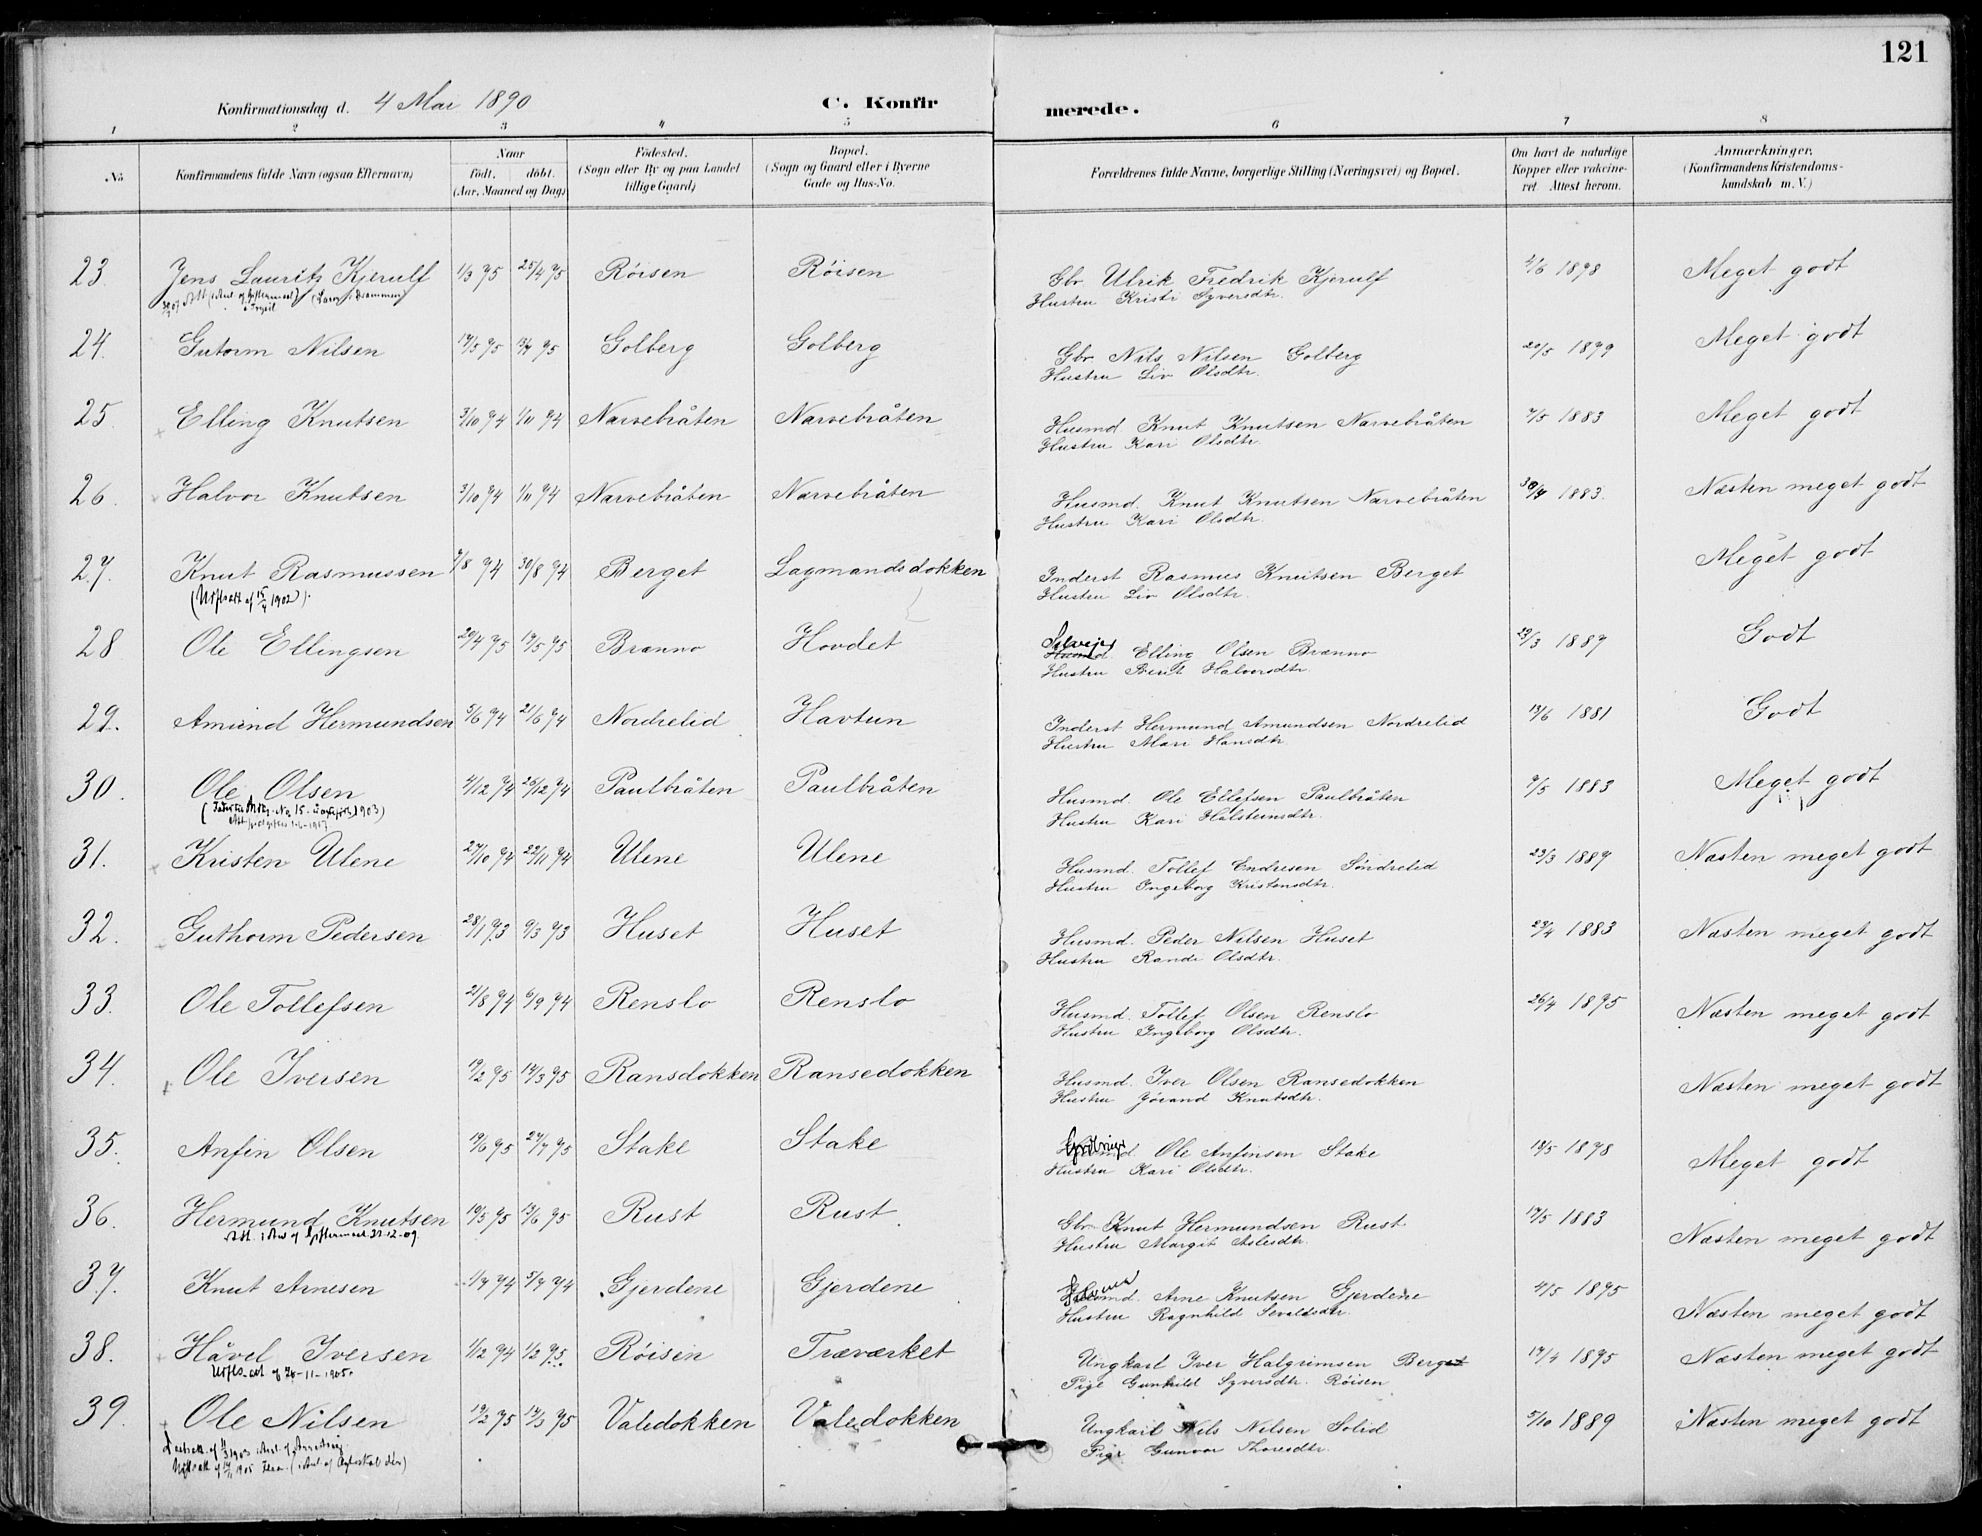 121
Konfirmationsdag d. 4 Mai 1890 C. Konfirmerede.
1 2 3 4 5 6 7 8
No. Konfirmandens fulde Navn (ogsaa Efternavn) Naar født. døbt. (Aar, Maaned og Dag) Fødested. (Sogn eller By og paa Landet tillige Gaard) Bopæl. (Sogn og Gaard eller i Byerne Gade og Hus-No. Forældrenes fulde Navne, borgerlige Stilling (Næringsvei) og Bopæl. Om havt de naturlige Kopper eller vakcineret. Attest herom. Anmærkninger. (Konfirmandens Kristendomskundskab m. V.)
23. Jens Laurits Kjerulf 1/3 75 25/4 75 Röisen Röisen Gbr Ulrik Fredrik Kjerulf 4/6 1878 Meget godt
Hustru Kristi Syversdtr.
24. Gutorm Nilsen 75 75 Golberg Golberg Gbr Nils Nilsen Golberg 20/5 1879 Meget godt
Hustru Liv Olsdtr.
25. Elling Knutsen 3/10 74 1/11 74 Narvebråten Narvebråten Husmd Knut Knutsen Narvebråten 7/5 1883 Meget godt
Hustru Kari Olsdtr.
26. Halvor Knutsen 3/10 74 1/11 74 Narvebråten Narvebråten Husmd. Knut Knutsen Narvebråten 1883. Næsten meget godt
Hustru Kari Olsdtr.
27. Knut Rasmussen 7/8 74 30/8 74 Berget Lagmandsdokken Inderst Rasmus Knutsen Berget Meget godt
(Udflsatt af 15/4 1902). Hustru Liv Olsdtr.
28 Ole Ellingsen 20/4 75 17/5 75 Brænno Hovdet Selveier Elling Olsen Brænno 29/3 1887 Godt
Hustru Berit Halvorsdtr.
29. Amund Hermundsen 5/6 74 21/6 74 Nordrelid Havtun Inderst Hermund Amundsen Nordrelid 13/6 1881 Godt
Hustru Mari Hansdtr.
30. Ole Olsen 4/12 74 26/12 74 Paulbråten Paulbråten Husmd. Ole Ellefsen Paulbråten 9/5 1883 Meget godt
Hustru Kari Halsteinsdtr.
31. Kristen Ulene 27/10 74 22/11 74 Ulene Ulene Husmd. Tollef Endresen Söndrelid 23/3 1889 Næsten meget godt
Hustru Ingeborg Kristensdtr.
32. Guthorm Pedersen 28/1 73 9/3 73 Huset Huset Husmd. Peder Nilsen Huset 23/4 1883 Næsten meget godt
Hustru Randi Olsdtr.
33. Ole Tollefsen 21/8 74 6/9 74 Renslo Renslo Husmd. Tollef Olsen Renslo 26/4 1875 Næsten meget godt
Hustru Ingeborg Olsdtr.
34. Ole Iversen 75 75 Ransdokken Ransedokken Husmd. Iver Olsen Ransedokken Næsten meget godt
Hustru Jörand Knutsdtr.
35. Anfin Olsen 19/6 75 27/7 75 Stake Stake Ole Anfinsen Stake 18/5 1878 Meget godt
Hustru Kari Olsdtr.
36. Hermund Knutsen 19/5 75 13/6 75 Rust Rust Gbr Knut Hermundsen Rust 17/5 1883 Næsten meget godt
Att. i Anl. af Giftermaal 31-12-09. Hustru Margit Aslesdtr.
37. Knut Arnesen 1/7 74 5/7 74 Gjerdene Gjerdene Arne Knutsen Gjerdene 4/5 1875 Næsten meget godt
Hustru Ragnhild Sevaldsdtr.
38. Håvel Iversen 1/12 74 1/2 75 Röisen Træværket Ungkarl Iver Halgrimsen Berget 17/4 1875 Næsten meget godt
Pige Gunhild Syversdtr. Röisen
39. Ole Nilsen 75 75 Valedokken Valedokken Ungkarl Nils Nilsen Solid 5/10 1889 Næsten meget godt
Pige Gunvor Thoresdtr.